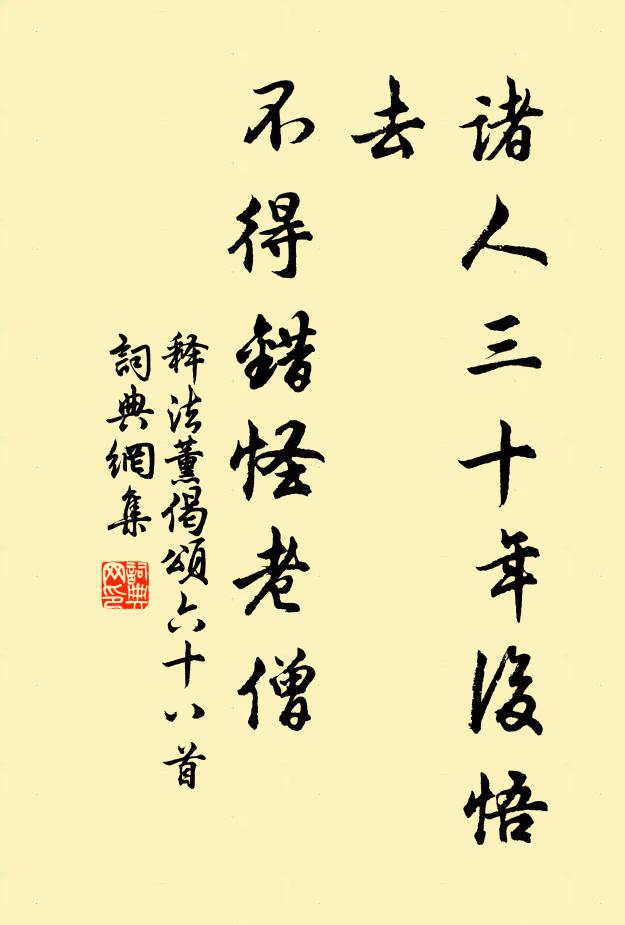 諸人三十年後悟
去
不得錯怪老僧
释法薰偈頌六十八首
詞典網集
詞典网印